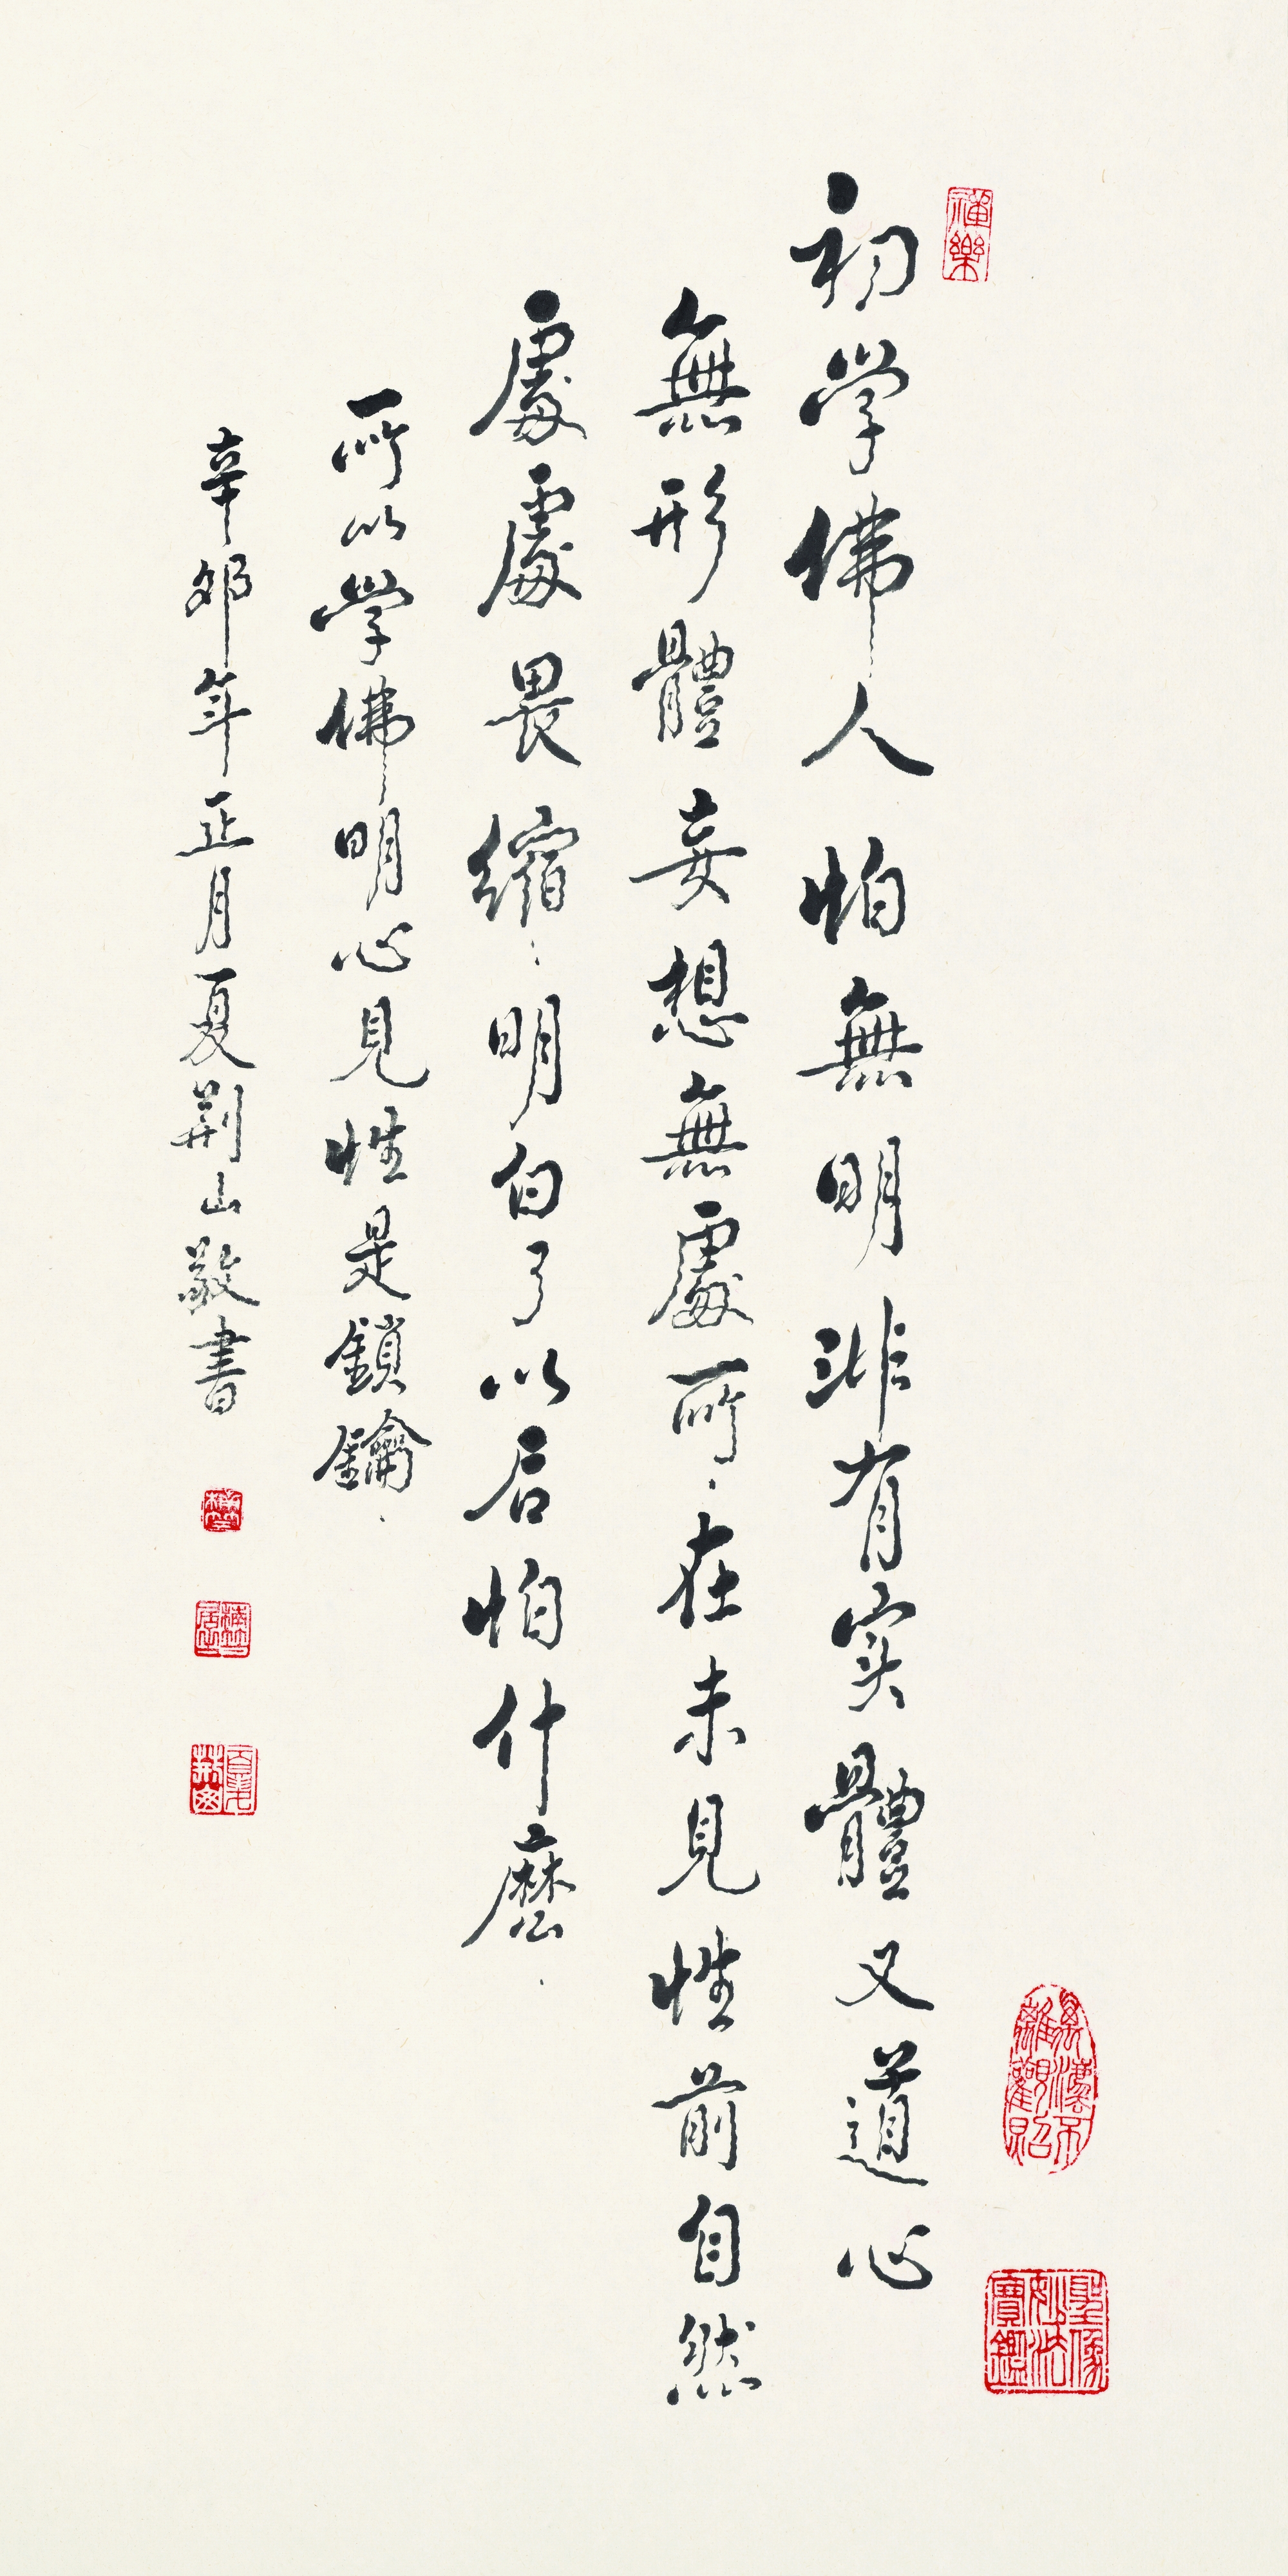 初学佛人怕無明非有实體又道心
無形體妄想無處所在未見性前自然
處處畏縮明白了以后怕什麽
所以學佛明心見性是鎖鑰
辛卯年正月夏荆山敬書
禪樂
聖像妙法寶鑑
夏荆山